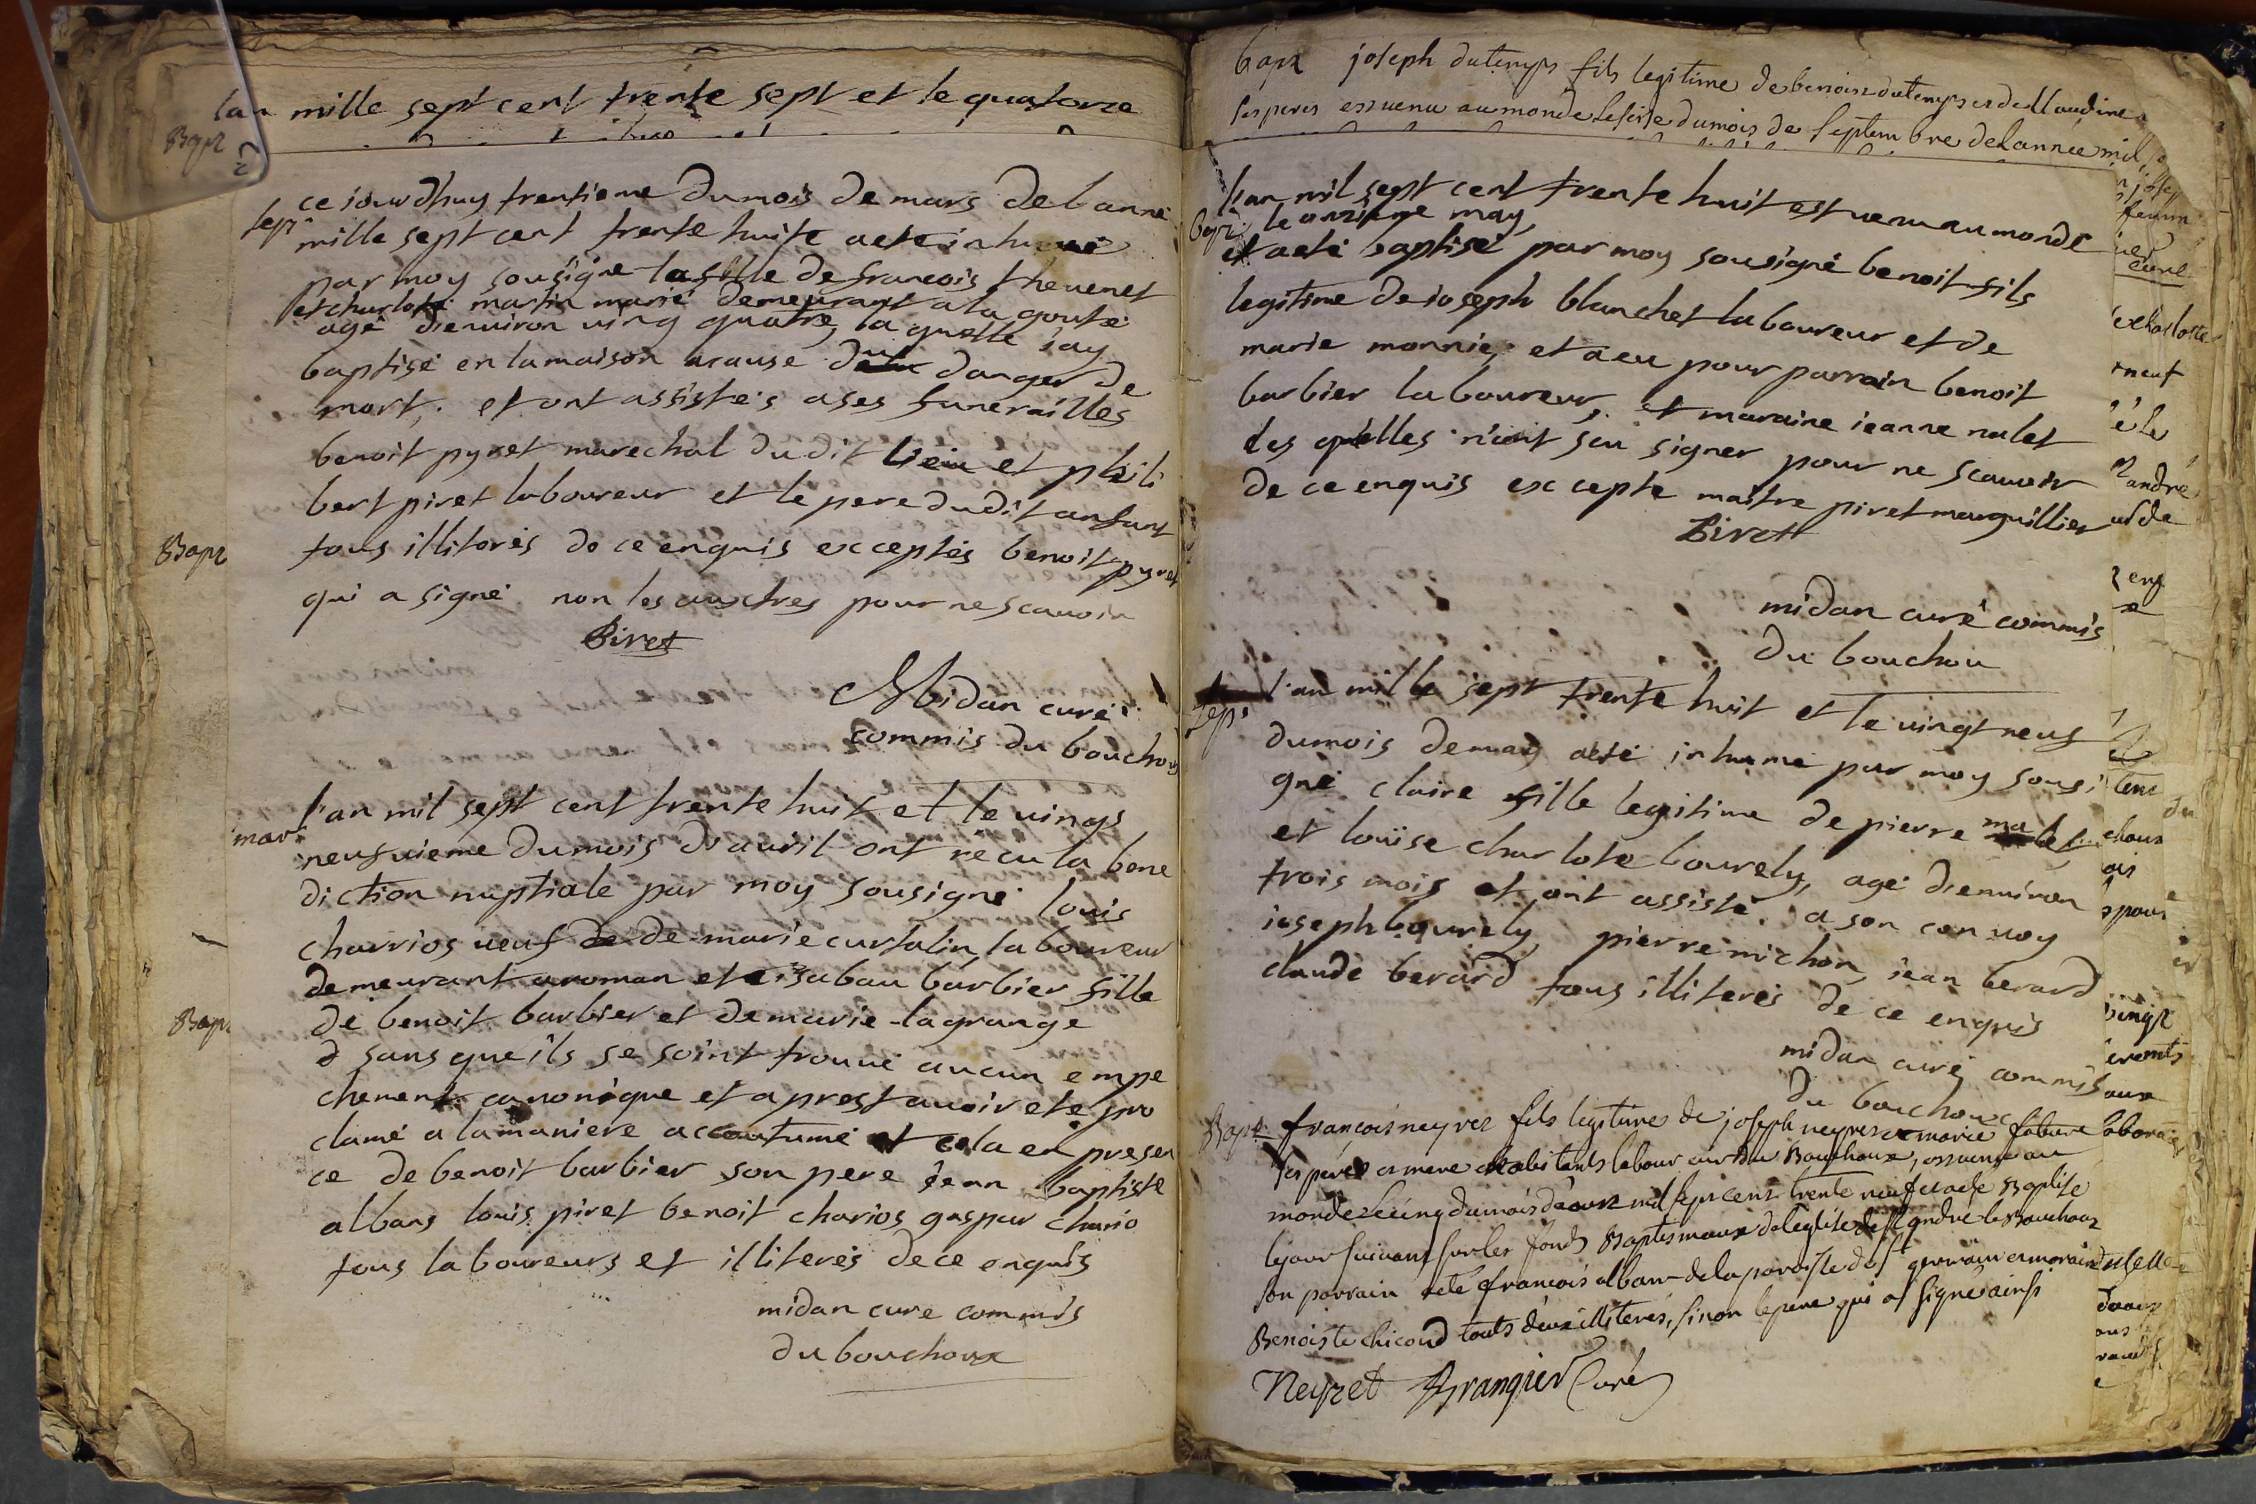 lan mille sept cent trente sept et le quatorze
Bapt
ce iourdhuy trentieme du mois de mars de lanne
sep
mille sept cent trente huite aete inhumé
par moy sousigne la fille de francois theuenet
et charlote martin marié demeurant a la goute
agé denuiron ving quatre, la quelle iay
baptisé en la maison acause du danger de
mort, et ont assistés ases funerailles
benoit pyret marechal dudit lieu et phili
bert piret laboureur et le pere dudit anfant
Bapt
tous illiterés de ce enquis exceptés benoit pyret
qui a signé non les auxtres pour ne scauoir
Piret
Midan curé
commis du bouchoux
l'an mil sept cent trente huit et le vings
mar
neufuieme du mois d'auril ont récu la bene
diction nuptiale par moy sousigné louis
charrios ueuf de de marie curtalin laboureur
demeurant aroman et eisabau barbier fille
Bapt
de benoit barbier et de marie lagrange
d sans que ils se soint trouué aucun empe
chement canonique et aprest auoir eté pro
clamé a lamaniere accoutumé et cela en presen
ce de benoit barbier son pere iean baptiste
albans louis piret benoit charios gaspar chario
tous laboureurs et illiterés de ce enquis
midan cure commis
du bouchoux
bapt joseph dutemps fils legitime de benoist dutemps et de Claudine
ses peres est venu au monde le seise du mois de septembre de lannee mil
l'an mil sept cent trente huit est uenu au monde
Bapt le onzieme may
et aeté baptisé par moy sousigné benoit fils
legitime de ioseph blanchet laboureur et de
marie monnie, et a eu pour parrain benoit
barbier laboureur, et maraine ieanne nalet
les quelles n'ont seu signer pour ne scauoir
de ce enquis excepte maitre piret marguillier
Pirett
midan curé commis
du bouchou
l'an mille sept trente huit et le uingt neuf
sep
du mois de may aeté inhumé par moy sousi
gné claire fille legitime de pierre
et louise charlote bourely, agé denuiron
trois mois et ont assisté a son conuoy
ioseph bourely, pierre michon, iean berard
claude berard tous illiterés de ce enquis
midan curé commis
du bouchoux
Bapt francois neyret fils legitime de joseph neyret et marie fabure
ses peres et mere habitants labour aux du Bouchoux, est venu au
monde le cinq du mois daoux mil sept cent trente neuf et aete Baptisé
lejour suivant sur les fonds Baptismaux de leglise de st andré le Bouchoux
son parrain aeté francois albans de la paroisse de st germain et maraine
Benoiste chicoud touts deux illiterés, sinon le pere qui a signé ainsi
Neyret Brangier Curé